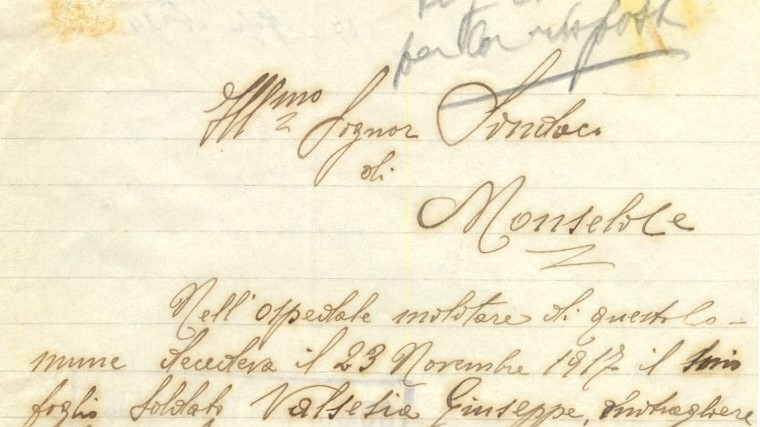 per la risposta
Ill.mo Signor Sindaco
di
Monselice
Nell'ospedale militare di questo Co-
mune decedeva il 23 Novembre 1917 il mio
figlio soldato Valsesia Giuseppe, mitragliere